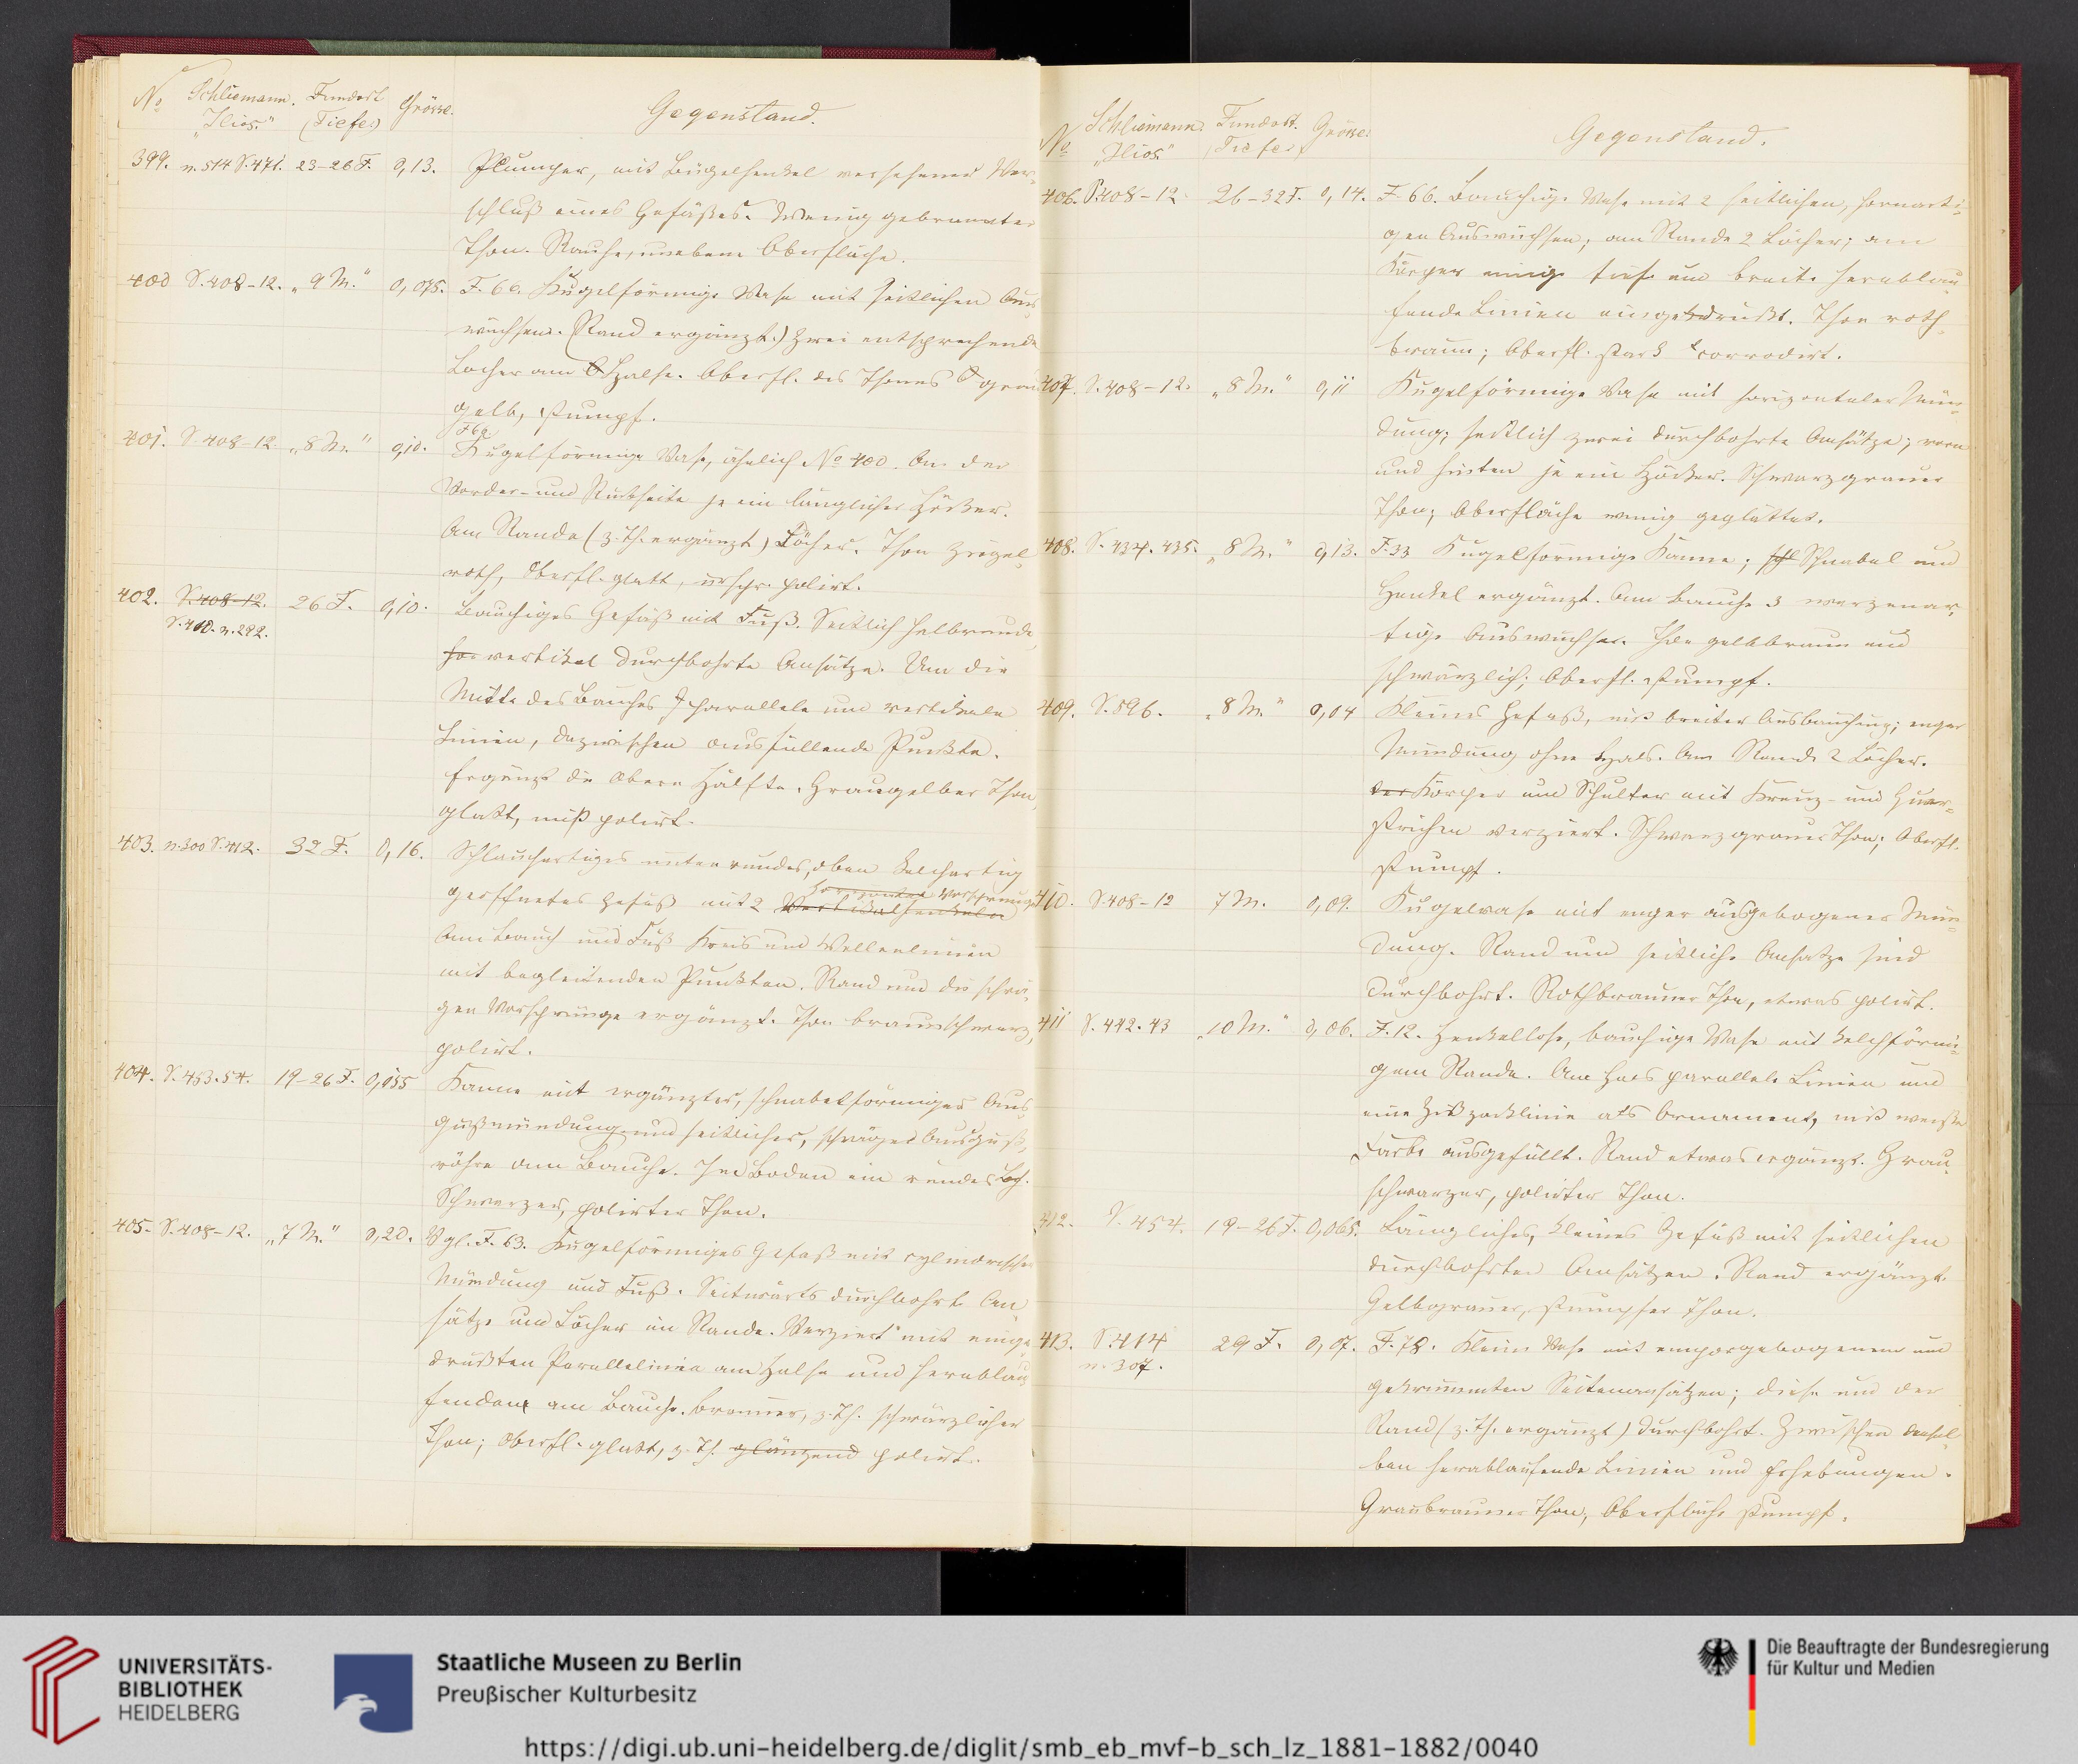 No Schliemann. Fundort Grösse. Gegenstand.
"Ilios." (Tiefe)
399. n. 514 S. 471. 23–26 F. 0,13. Plumper, mit Bügelhenkel versehener Ver-
schluß eines Gefäßes. Wenig gebrannter
Thon. Rauhe, unebene Oberfläche.
400 S. 408–12. „9 M." 0,075. F. 66. Kugelförmige Vase mit seitlichen Aus-
wüchsen. (Rand ergänzt.) Zwei entsprechende
Löcher am Halse. Oberfl. des Thones grau
gelb, stumpf.
F 69
401. S. 408–12 „8 M." 0,10. Kugelförmige Vase, ähnlich No 400. An der
Vorder- und Rückseite je ein länglicher Höcker.
Am Rande (z. Th. ergänzt) Löcher. Thon ziegel-
roth, Oberfl. glatt, urspr. polirt.
402. S. 408–12. 26 F. 0,10. Bauchiges Gefäß mit Fuß. Seitlich halbrunde,
S. 410. n. 292.
hor vertikal durchbohrte Ansätze. Um die
Mitte des Bauches parallele und vertikale
Linien, dazwischen ausfüllende Punkte.
Ergänzt die obere Hälfte. Graugelber Thon,
glatt, polirt.
403. n. 300 S. 412. 32 F. 0,16. Schlauchartiges unten rundes, oben kelchartig
geöffnetes Gefäß mit 2 Vertikalhenkeln
Vorsprüngen
Am Bauch und Fuß Kreis und Wellenlinien
mit begleitenden Punkten. Rand und die schrä-
gen Vorsprünge ergänzt. Thon braunschwarz,
polirt.
404. S. 453. 54. 19–26 F. 0,155 Kanne mit ergänzter, schnabelförmiger Aus-
gußmündung und seitlicher, schräger Ausguß-
röhre am Bauche. Im Boden ein rundes Loch.
Schwarzer, polirter Thon.
405. S. 408–12. „7 M." 0,20. Vgl. F. 63. Kugelförmiges Gefäß mit cylindrischer
Mündung und Fuß. Seitwärts durchbohrte An
sätze und Löcher im Rande. Verziert mit einge
drückten Parallelinien am Halse und herablau
fenden am Bauche. Brauner, z. Th. schwärzlicher
Thon; Oberfl. glatt, z. Th. glänzend polirt.
No Schliemann. Fundort. Grösse. Gegenstand.
"Ilios." (Tiefe)
406. S. 408–12. 26–32 F. 0,14. F. 66. Bauchige Vase mit 2 seitlichen, hornarti-
gen Auswüchsen, am Rande 2 Löcher; am
Körper einige tiefe und breite herablau-
fende Linien eingedrückt. Thon roth-
braun; Oberfl. stark corrodirt.
407. S. 408–12. „8 M." 0,11 Kugelförmige Vase mit horizontaler Mün-
dung; seitlich zwei durchbohrte Ansätze; vorn
und hinten je ein Höcker. Schwarzgrauer
Thon; Oberfläche wenig geglättet.
408. S. 434. 435. „8 M." 0,13. F. 33 Kugelförmige Kanne; Schnabel und
Henkel ergänzt. Am Bauche 3 warzenar-
tige Auswüchse. Thon gelbbraun und
schwärzlich; Oberfl. stumpf.
409. S. 596. „8 M." 0,04 Kleines Gefäß, mit breiter Ausbauchung; enger
Mündung ohne Hals. Am Rande 2 Löcher.
der Körper und Schulter mit Kreuz- und Quer-
strichen verziert. Schwarzgrauer Thon; Oberfl.
stumpf.
410. S. 408–12 7 M. 0,09. Kugelvase mit enger ausgebogener Mün-
dung. Rand und seitliche Ansätze sind
durchbohrt. Rothbrauner Thon, etwas polirt.
411 S. 442. 43 „10 M." 0,06. F. 12. Henkellose, bauchige Vase mit kelchförmi-
gem Rande. Am Hals parallele Linien und
eine Zickzacklinie als Ornament, mit weißer
Farbe ausgefüllt. Rand etwas ergänzt. Grau-
schwarzer, polirter Thon.
412. S. 454. 19–26 F. 0,065. Längliches, kleines Gefäß mit seitlichen
durchbohrten Ansätzen. Rand ergänzt.
Gelbgrauer, stumpfer Thon.
413. S. 414 29 F. 0,07. F. 78. Kleine Vase mit emporgebogenen und
n. 307.
gekrümmten Seitenansätzen; diese und der
Rand (z. Th. ergänzt) durchbohrt. Zwischen densel-
ben herablaufende Linien und Erhebungen.
Graubrauner Thon, Oberfläche stumpf.
UNIVERSITÄTS-
BIBLIOTHEK
HEIDELBERG
Staatliche Museen zu Berlin
Preußischer Kulturbesitz
Die Beauftragte der Bundesregierung
für Kultur und Medien
https://digi.ub.uni-heidelberg.de/diglit/smb_eb_mvf-b_sch_lz_1881-1882/0040